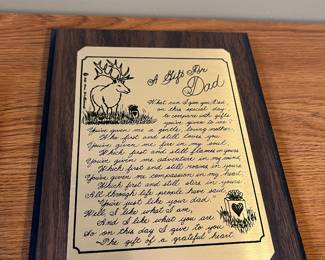 A Gift For
Dad
What can I give you Dad
on this special day
to compare with gifts
you've given to me?
You've given me a gentle, loving mother
Who first and still loves you.
You've given me fire in my soul
Which first and still flames in yours.
You've given me adventure in my mind
Which first and still roams in yours.
You've given me compassion in my heart
Which first and still stirs in yours.
All through life people have said
"You're just like your dad."
Well I like what I am,
And I like what you are
So on this day I give to you
The gift of a grateful heart